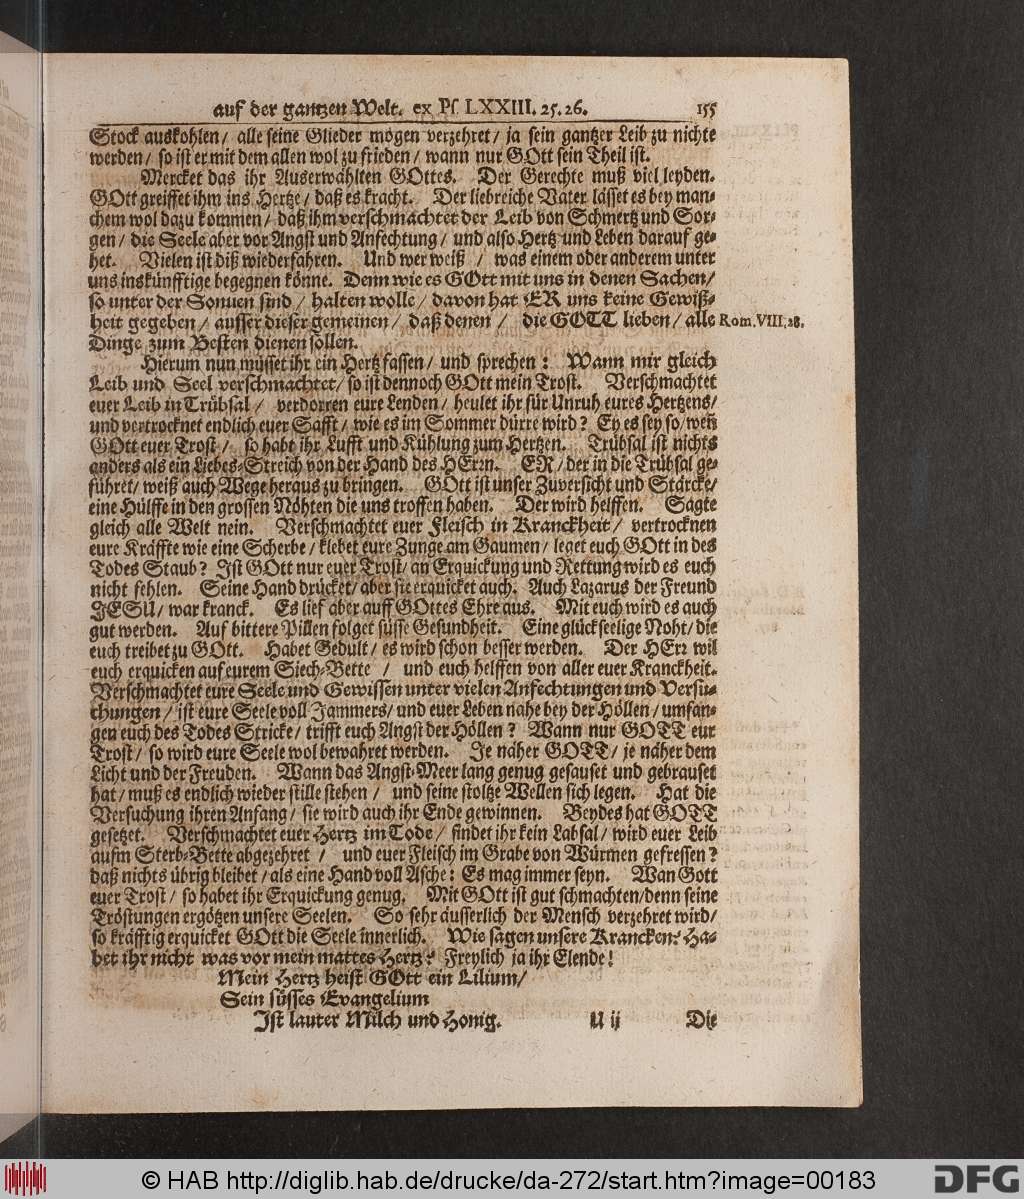 auf der gantzen Welt. ex Ps. LXXIII. 25. 26. 155
Stock auskohlen / alle seine Glieder mögen verzehret / ja sein gantzer Leib zu nichte
werden / so ist er mit dem allen wol zu frieden / wann nur GOtt sein Theil ist.
Mercket das ihr Auserwählten GOttes. Der Gerechte muß viel leyden.
GOtt greiffet ihm ins Hertze / daß es kracht. Der liebreiche Vater lässet es bey man-
chem wol dazu kommen / daß ihm verschmachtet der Leib von Schmertz und Sor-
gen / die Seele aber vor Angst und Anfechtung / und also Hertz und Leben darauf ge-
het. Vielen ist diß wiederfahren. Und wer weiß / was einem oder anderem unter
uns inskünfftige begegnen könne. Denn wie es GOtt mit uns in denen Sachen /
so unter der Sonnen sind / halten wolle / davon hat ER uns keine Gewiß-
heit gegeben / ausser dieser gemeinen / daß denen / die GOTT lieben / alle Rom. VIII, 28.
Dinge zum Besten dienen sollen.
Hierum nun müsset ihr ein Hertz fassen / und sprechen: Wann mir gleich
Leib und Seel verschmachtet / so ist dennoch GOtt mein Trost. Verschmachtet
euer Leib in Trübsal / verdorren eure Lenden / heulet ihr für Unruh eures Hertzens /
und vertrocknet endlich euer Safft / wie es im Sommer dürre wird? Ey es sey so / weñ
GOtt euer Trost / so habt ihr Lufft und Kühlung zum Hertzen. Trübsal ist nichts
anders als ein Liebes-Streich von der Hand des HErrn. ER / der in die Trübsal ge-
führet / weiß auch Wege heraus zu bringen. GOtt ist unser Zuversicht und Stärcke /
eine Hülffe in den grossen Nöhten die uns troffen haben. Der wird helffen. Sagte
gleich alle Welt nein. Verschmachtet euer Fleisch in Kranckheit / vertrocknen
eure Kräffte wie eine Scherbe / klebet eure Zunge am Gaumen / leget euch GOtt in des
Todes Staub? Ist GOtt nur euer Trost / an Erquickung und Rettung wird es euch
nicht fehlen. Seine Hand drücket / aber sie erquicket auch. Auch Lazarus der Freund
JESU / war kranck. Es lief aber auff GOttes Ehre aus. Mit euch wird es auch
gut werden. Auf bittere Pillen folget süsse Gesundheit. Eine glückseelige Noht / die
euch treibet zu GOtt. Habet Gedult / es wird schon besser werden. Der HErr wil
euch erquicken auf eurem Siech-Bette / und euch helffen von aller euer Kranckheit.
Verschmachtet eure Seele und Gewissen unter vielen Anfechtungen und Versu-
chungen / ist eure Seele voll Jammers / und euer Leben nahe bey der Höllen / umfan-
gen euch des Todes Stricke / trifft euch Angst der Höllen? Wann nur GOTT eur
Trost / so wird eure Seele wol bewahret werden. Je näher GOTT / je näher dem
Licht und der Freuden. Wann das Angst-Meer lang genug gesauset und gebrauset
hat / muß es endlich wieder stille stehen / und seine stoltze Wellen sich legen. Hat die
Versuchung ihren Anfang / sie wird auch ihr Ende gewinnen. Beydes hat GOTT
gesetzet. Verschmachtet euer Hertz im Tode / findet ihr kein Labsal / wird euer Leib
aufm Sterb-Bette abgezehret / und euer Fleisch im Grabe von Würmen gefressen?
daß nichts übrig bleibet / als eine Hand voll Asche: Es mag immer seyn. Wan Gott
euer Trost / so habet ihr Erquickung genug. Mit GOtt ist gut schmachten / denn seine
Tröstungen ergötzen unsere Seelen. So sehr äusserlich der Mensch verzehret wird /
so kräfftig erquicket GOtt die Seele innerlich. Wie sagen unsere Krancken? Ha-
bet ihr nicht was vor mein mattes Hertz? Freylich ja ihr Elende!
Mein Hertz heist GOtt ein Lilium /
Sein süsses Evangelium
Ist lauter Milch und Honig. U ij Die
© HAB http://diglib.hab.de/drucke/da-272/start.htm?image=00183 DFG